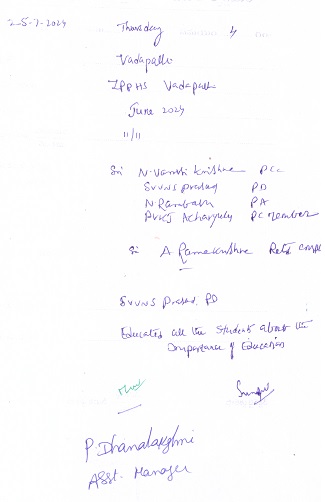 25-7-2024 Thursday 4
Vadapalli
ZPPHS Vadapalli
June 2024
11/11
Sri N. Vamsi Krishna PCC
SVVNS Prasad PD
N Rambabu PA
PVKJ Acharyulu PC member
Sri A Ramakrishna Retd
SVVNS Prasad, PD
Educated all the students about the
importance of Education
P. Dhanalakshmi
Asst. Manager